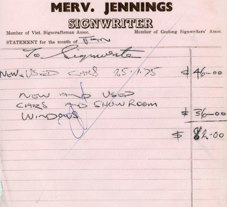 MERV. JENNINGS
SIGNWRITER
Member of Vict. Signcraftsmen Assoc. Member of Geelong Signwriters' Assoc.
STATEMENT for the month of JAN
To Signwriting
NEW & USED CARS 25.1.75 $ 46-00
NEW AND USED
CARS SHOWROOM
WINDOWS $ 36-00
$ 82.00